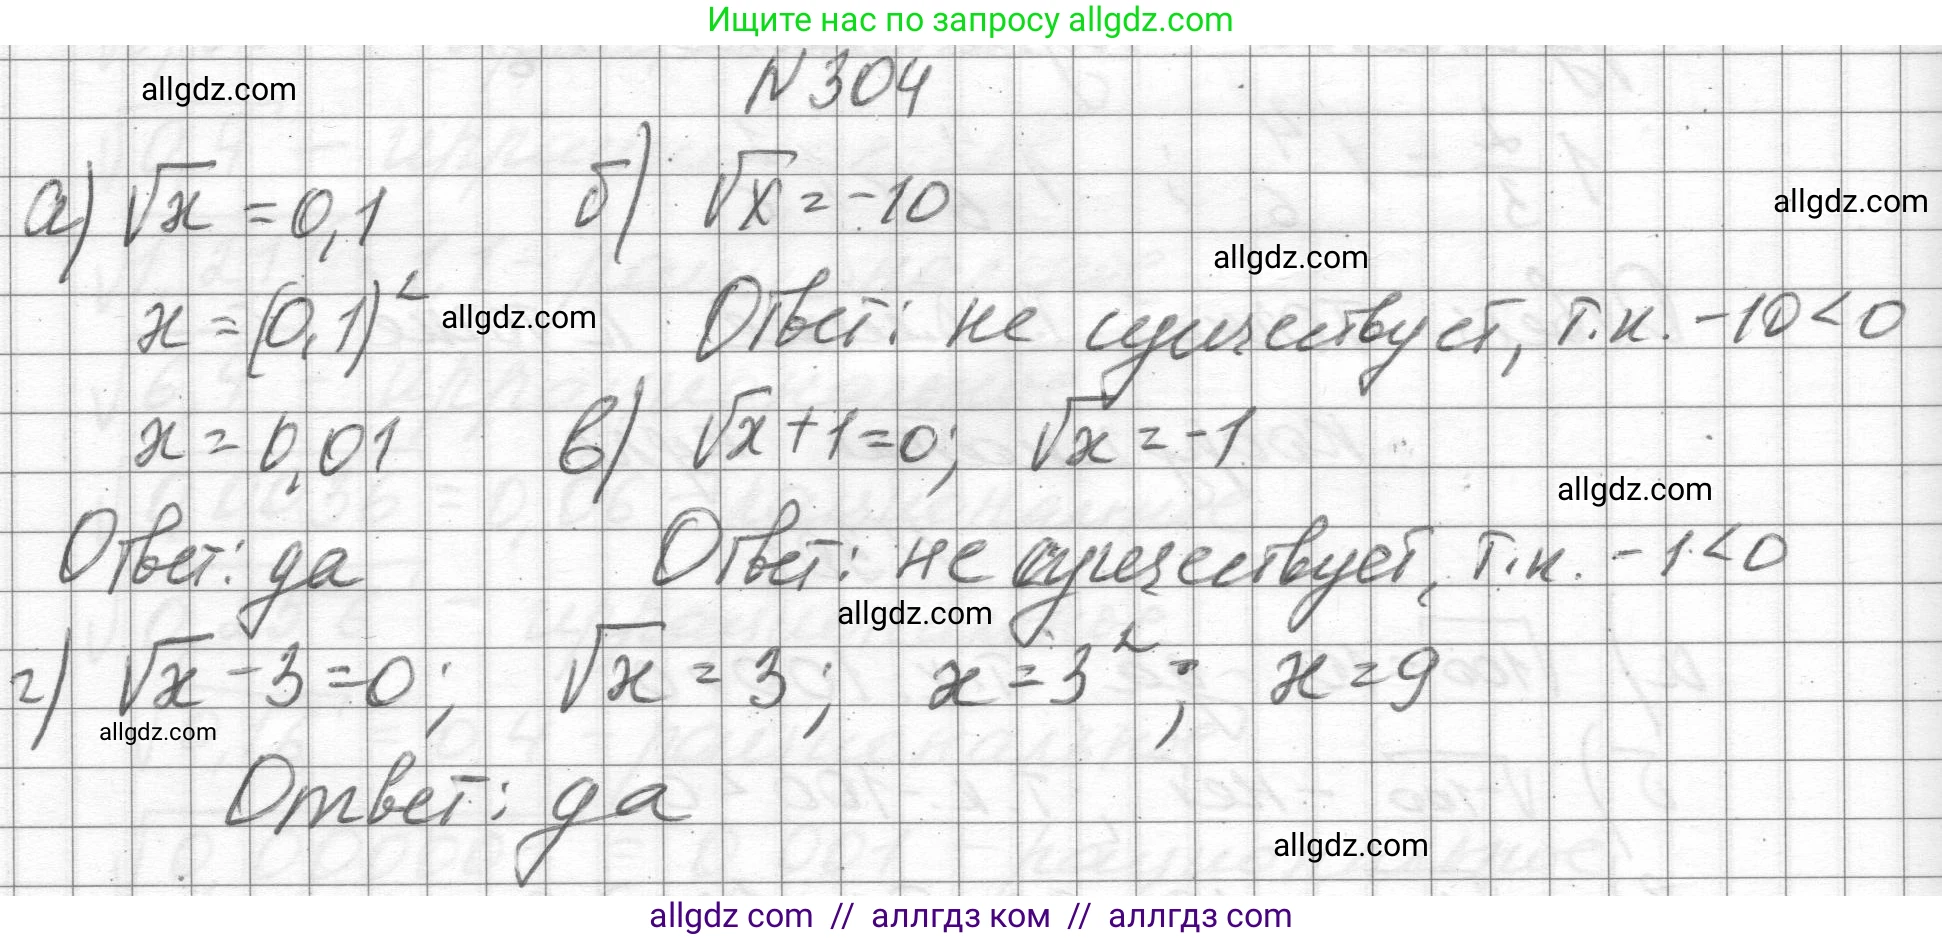 Ищите нас по запросу allgdz.com
N 304
allgdz.com
а) √x = 0,1
б) √x = -10
allgdz.com
allgdz.com
x = (0,1)²
allgdz.com
Ответ: не существует, т.к. -10 < 0
x = 0,01
в) √x + 1 = 0; √x = -1
allgdz.com
Ответ: да
Ответ: не существует, т.к. -1 < 0
allgdz.com
г) √x - 3 = 0; √x = 3; x = 3²; x = 9
allgdz.com
Ответ: да
allgdz.com
allgdz com // аллгдз ком // аллгдз com